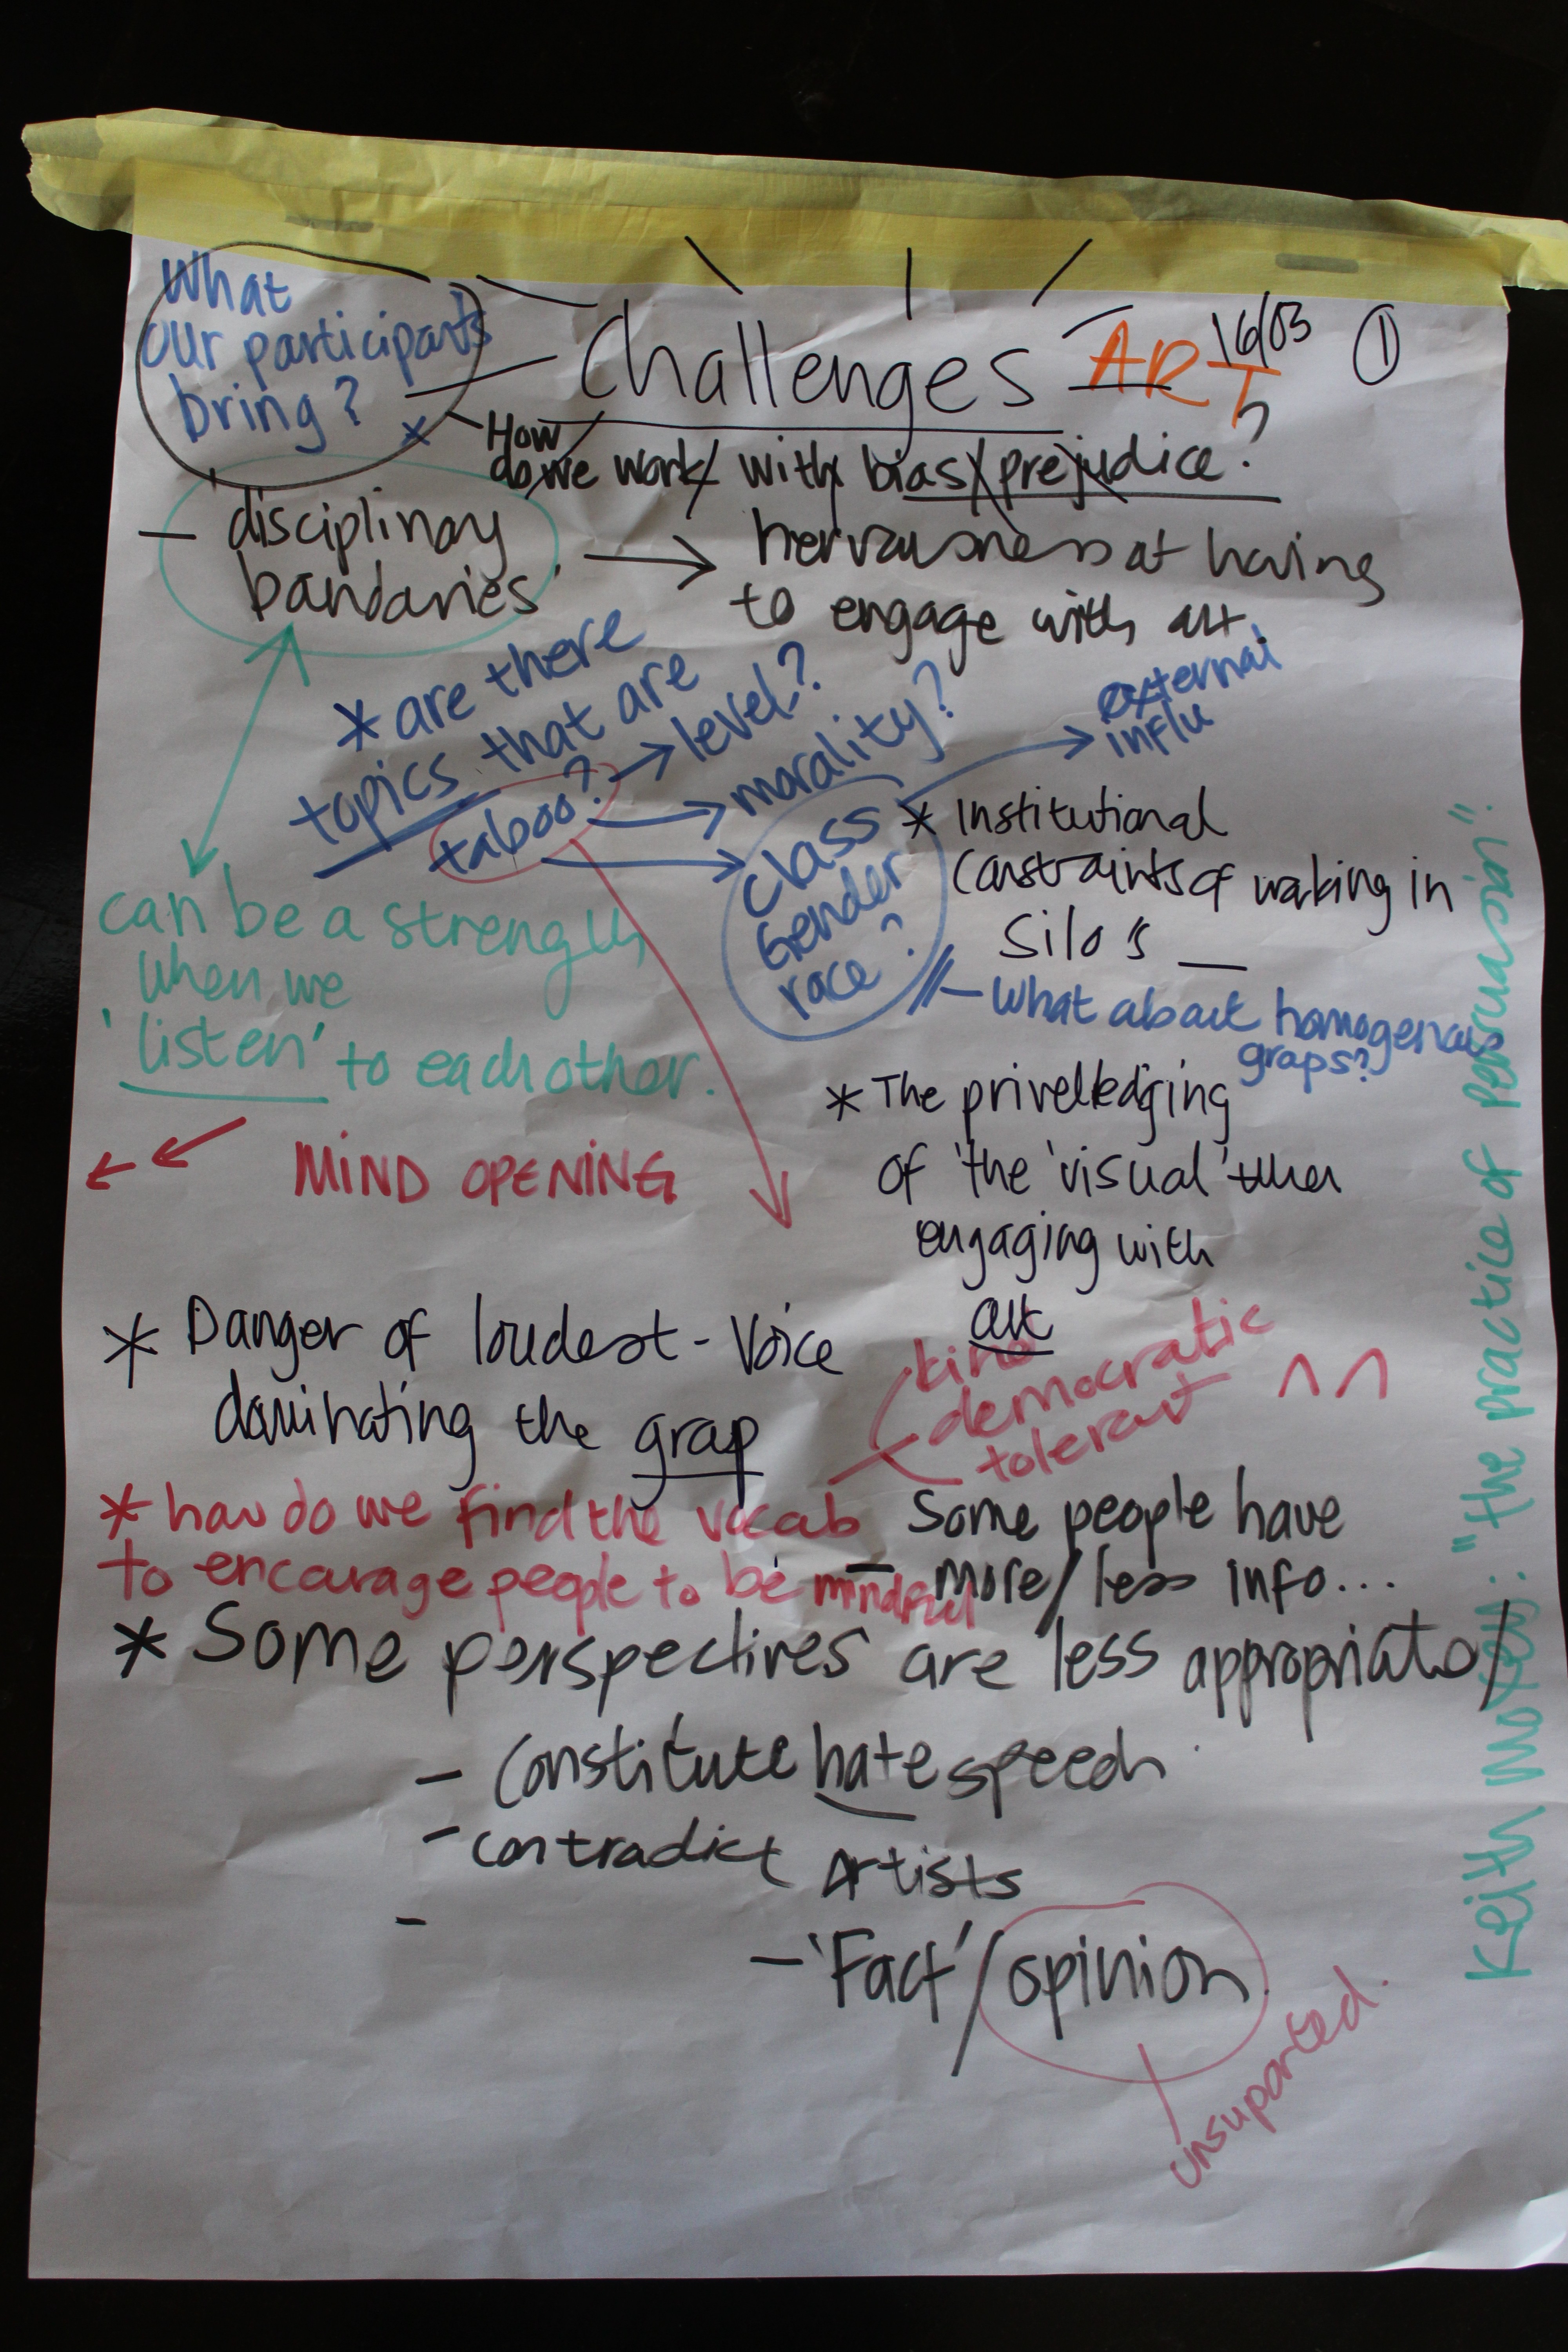 What
our participants
bring?
Challenges
ART
16/03
1
How
do we work with bias/prejudice?
- disciplinary
boundaries
→ nervousness at having
to engage with art.
* are there
topics that are
taboo?
→ level?
→ morality?
→ class
Gender
race?
→ external
influ
* Institutional
Constraints of working in
Silo's —
- What about homogenous
groups?
can be a strength
when we
'listen' to each other.
MIND OPENING
* The privelledging
of 'the 'visual' when
engaging with
art
* Danger of loudest-Voice
dominating the group
kind
democratic
tolerant
* how do we find the vocab
to encourage people to be mindful
Some people have
- more/less info...
* Some perspectives are less appropriate/
- Constitute hate speech
- contradict Artists
-
- 'Fact'/opinion
unsuported.
Keith Moxey: "the practice of persuasion".